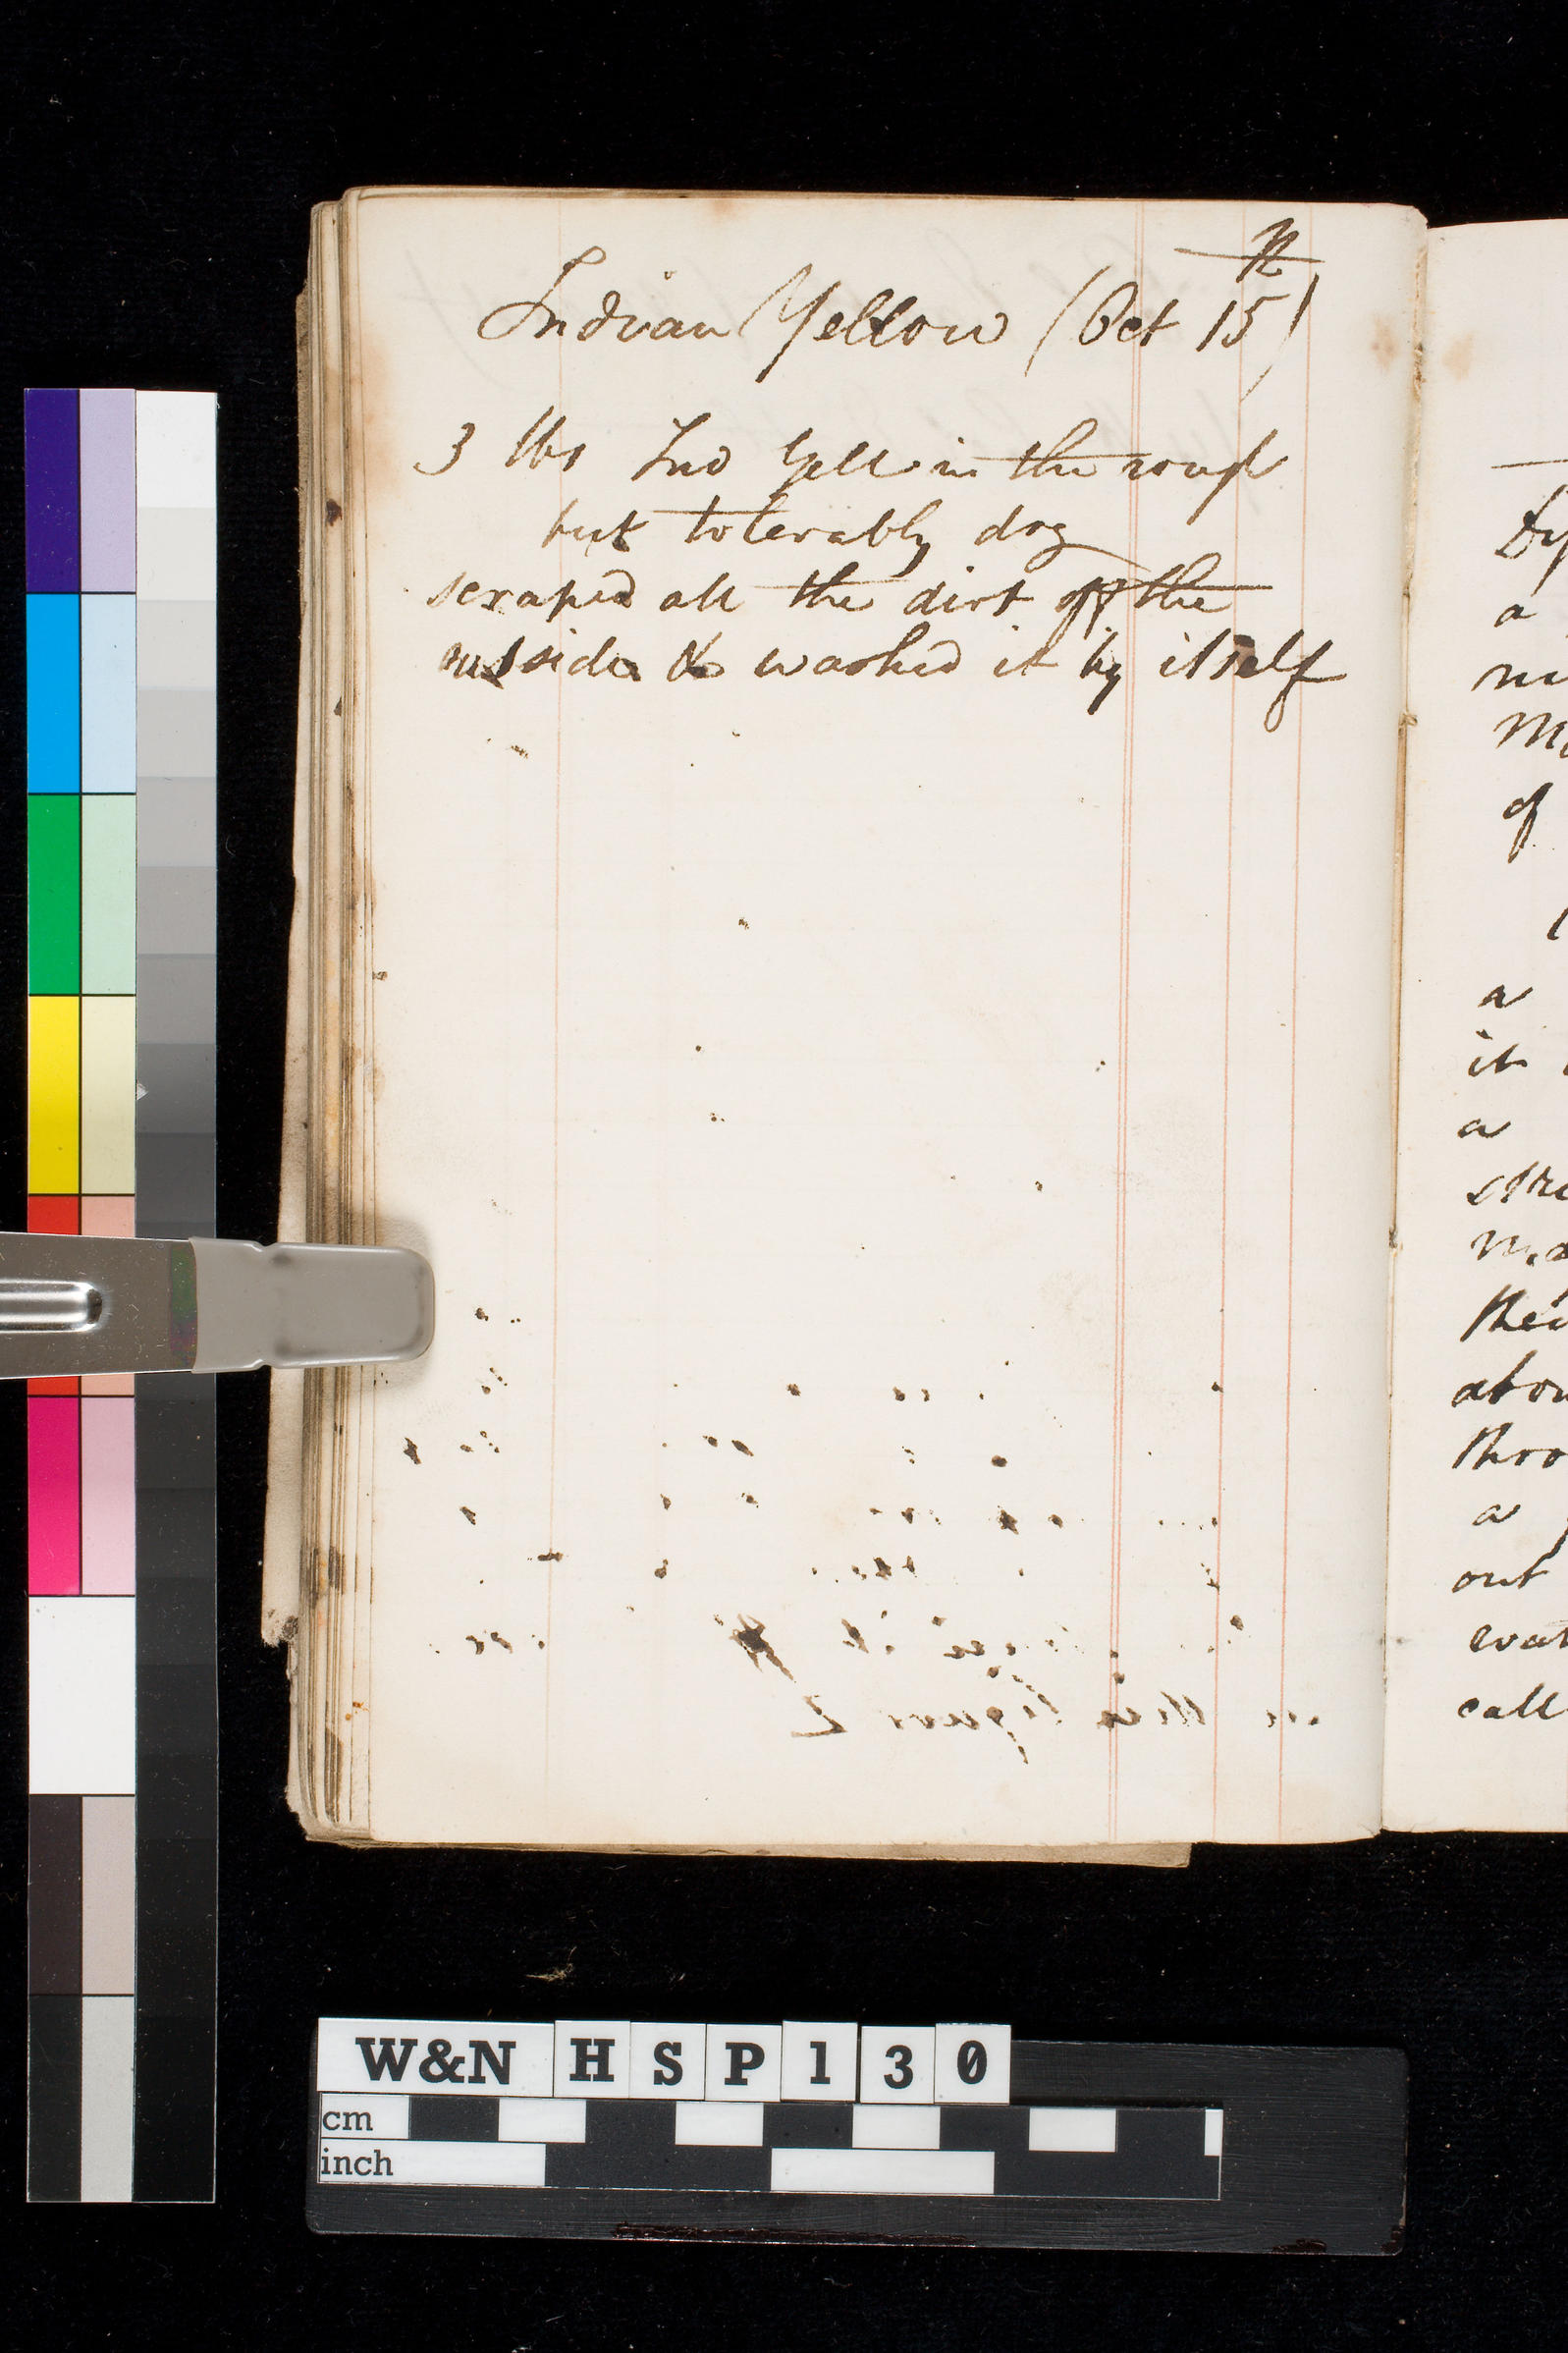 Indian Yellow (Oct 15)
3 lbs Ind Yell in the rough
but tolerably dry
scraped all the dirt off the
outside & washed it by itself
a
of
a
it
a
a
out
call
W&N HSP130
cm
inch